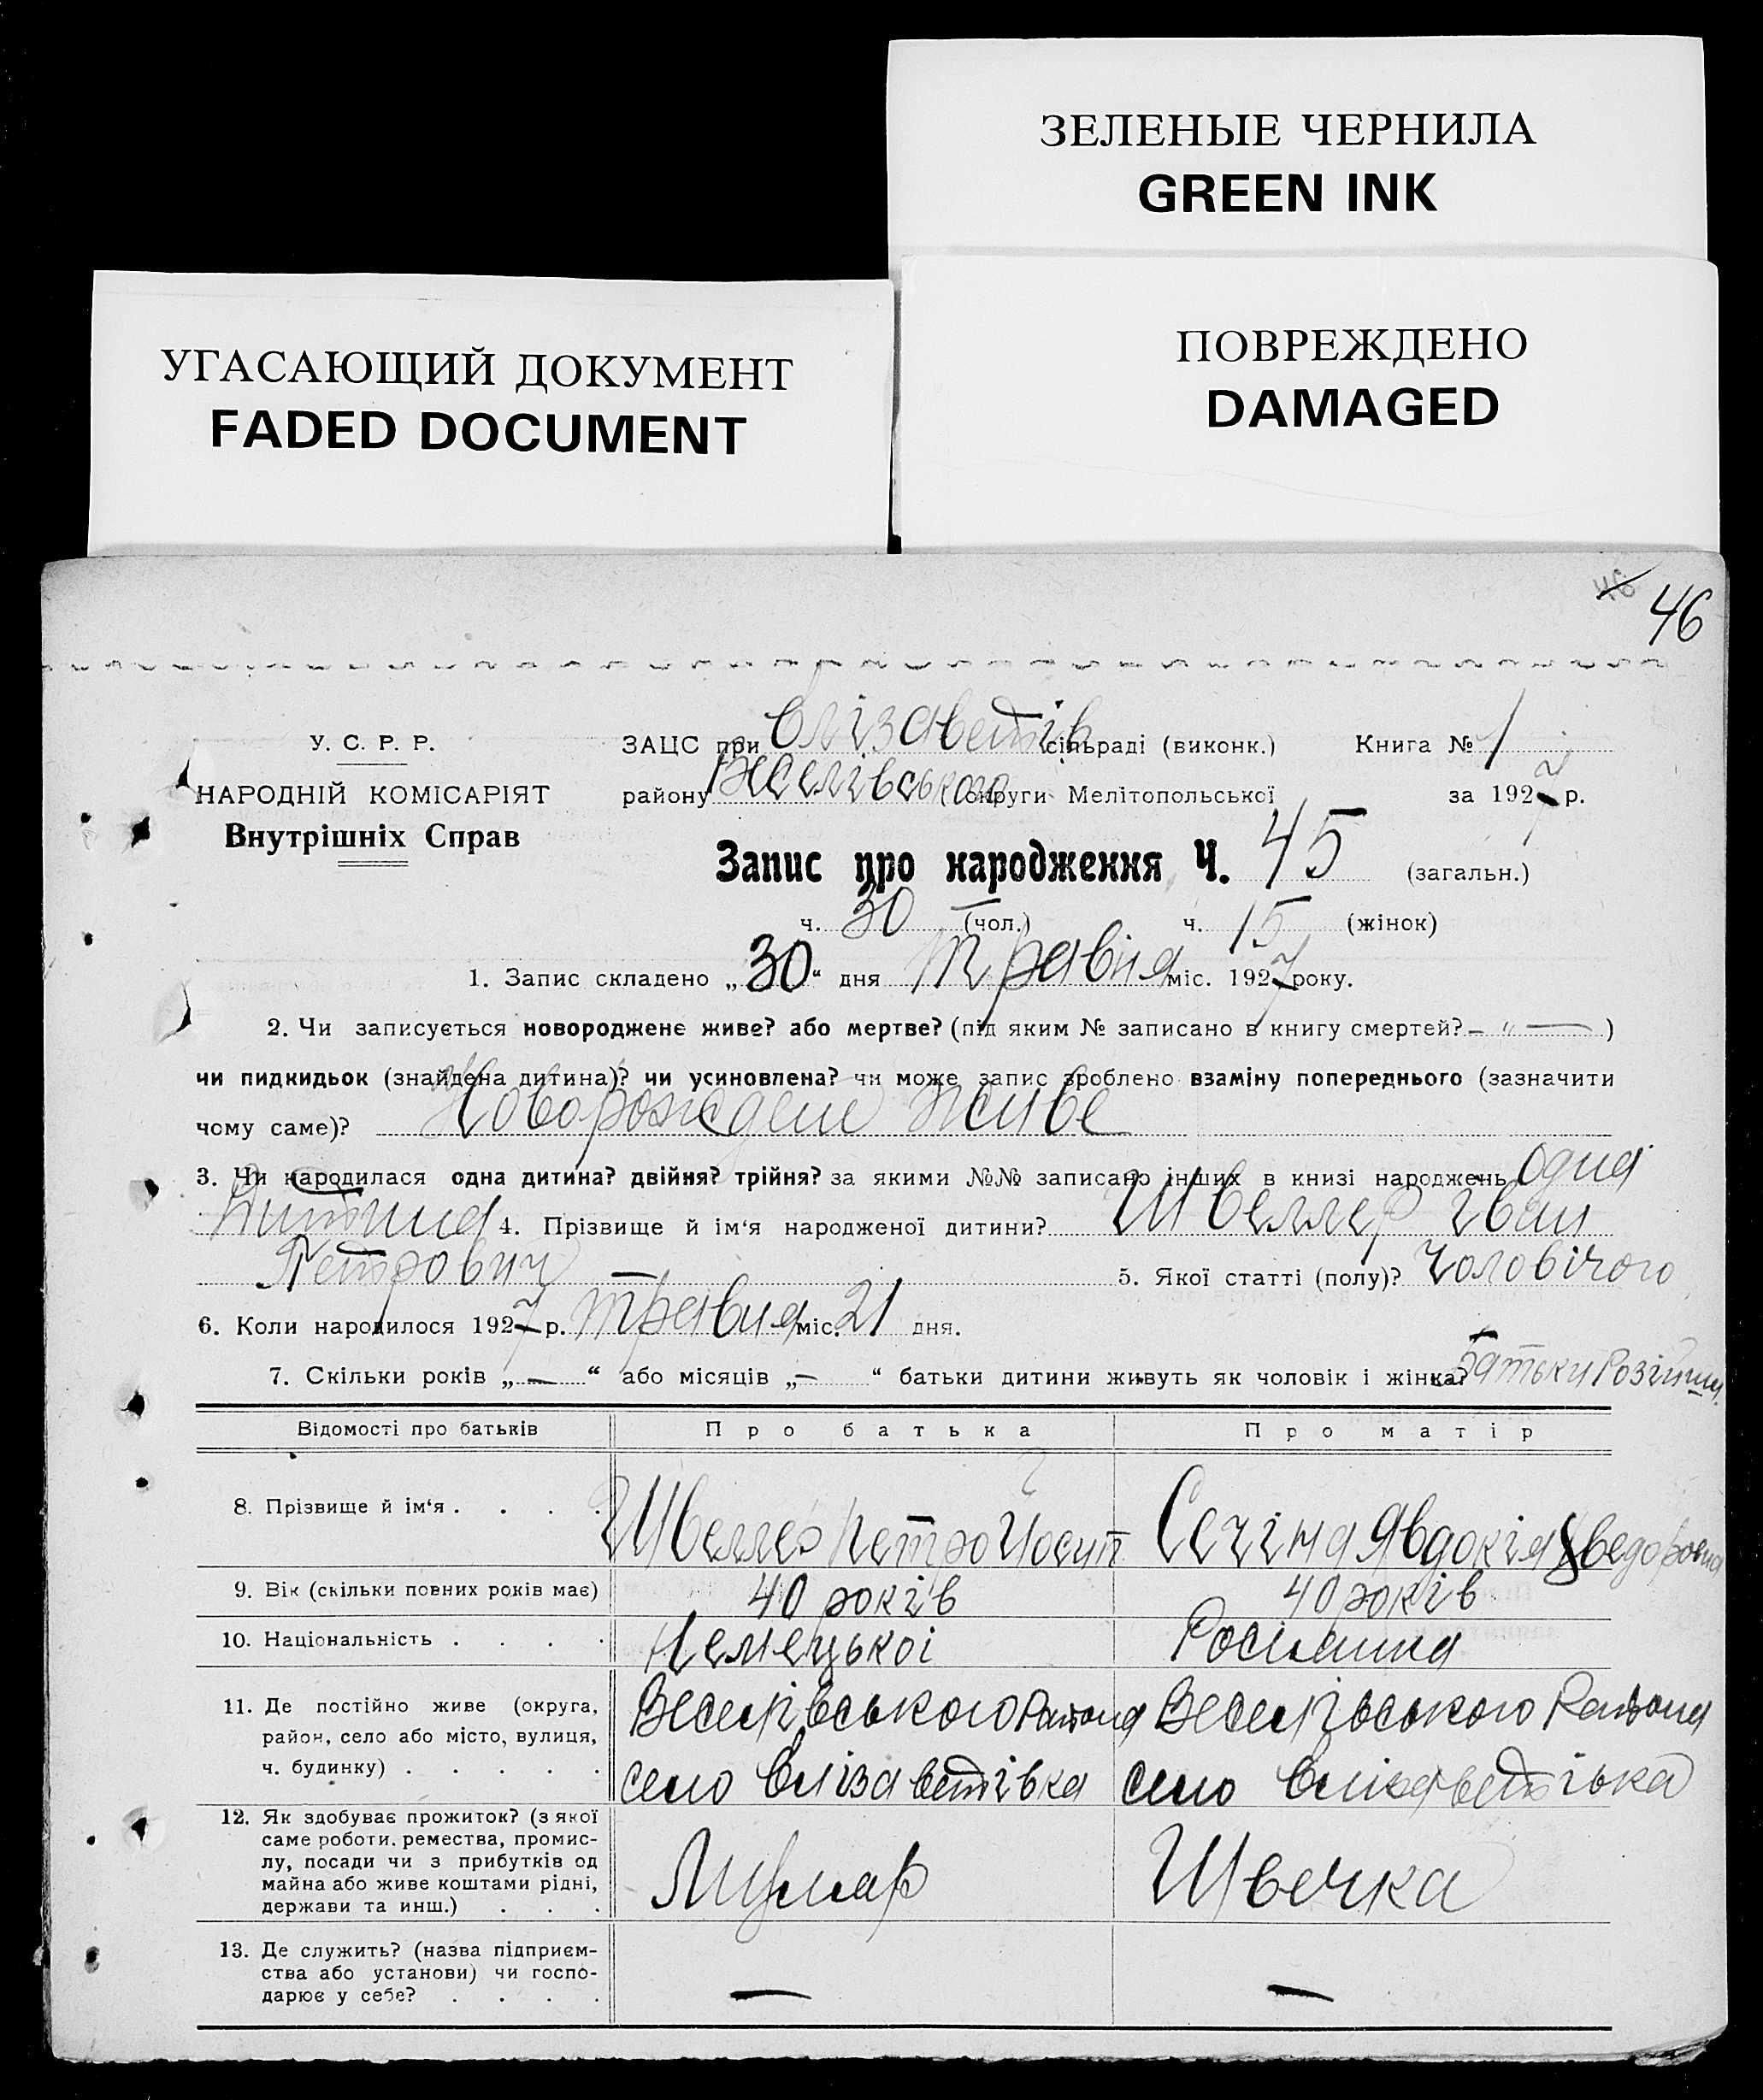 ЗЕЛЕНЫЕ ЧЕРНИЛА
GREEN INK
УГАСАЮЩИЙ ДОКУМЕНТ
FADED DOCUMENT
ПОВРЕЖДЕНО
DAMAGED
46 46
У. С. Р. Р.
НАРОДНІЙ КОМІСАРІЯТ
Внутрішніх Справ
ЗАЦС при Єлізаветів сільраді (виконк.) Книга № 1
району Веселівського округи Мелітопольської за 1927 р.
Запис про народження Ч. 45 (загальн.)
ч. 30 (чол.) ч. 15 (жінок)
1. Запис складено „30“ дня травня міс. 1927 року.
2. Чи записується новороджене живе? або мертве? (під яким № записано в книгу смертей? — " — )
чи пидкидьок (знайдена дитина)? чи усиновлена? чи може запис зроблено взаміну попереднього (зазначити
чому саме)? Новорождене живе
3. Чи народилася одна дитина? двійня? трійня? за якими №№ записано інших в книзі народжень одна
дитина 4. Прізвище й ім‘я народженої дитини? Швеллер Іван
Петрович 5. Якої статті (полу)? Чоловічого
6. Коли народилося 1927 р. травня міс. 21 дня.
7. Скільки років „ — “ або місяців „ — “ батьки дитини живуть як чоловік і жінка? Батьки Розійшли.
Відомості про батьків Про батька Про матір
8. Прізвище й ім‘я . . . . Швеллер Петро Йосип Сечіна Явдокія Хведоровна
9. Вік (скільки повних років має) 40 років 40 років
10. Національність . . . . Немецької Росіянина
11. Де постійно живе (округа, район, село або місто, вулиця, ч. будинку) . . . . . Веселівського Района село Єлізаветівка Веселівського Района село Єлізаветівка
12. Як здобуває прожиток? (з якої саме роботи, ремества, промислу, посади чи з прибутків од майна або живе коштами рідні, держави та инш.) . . . Лимар Швечка
13. Де служить? (назва підприємства або установи) чи господарює у себе? . . . . — —